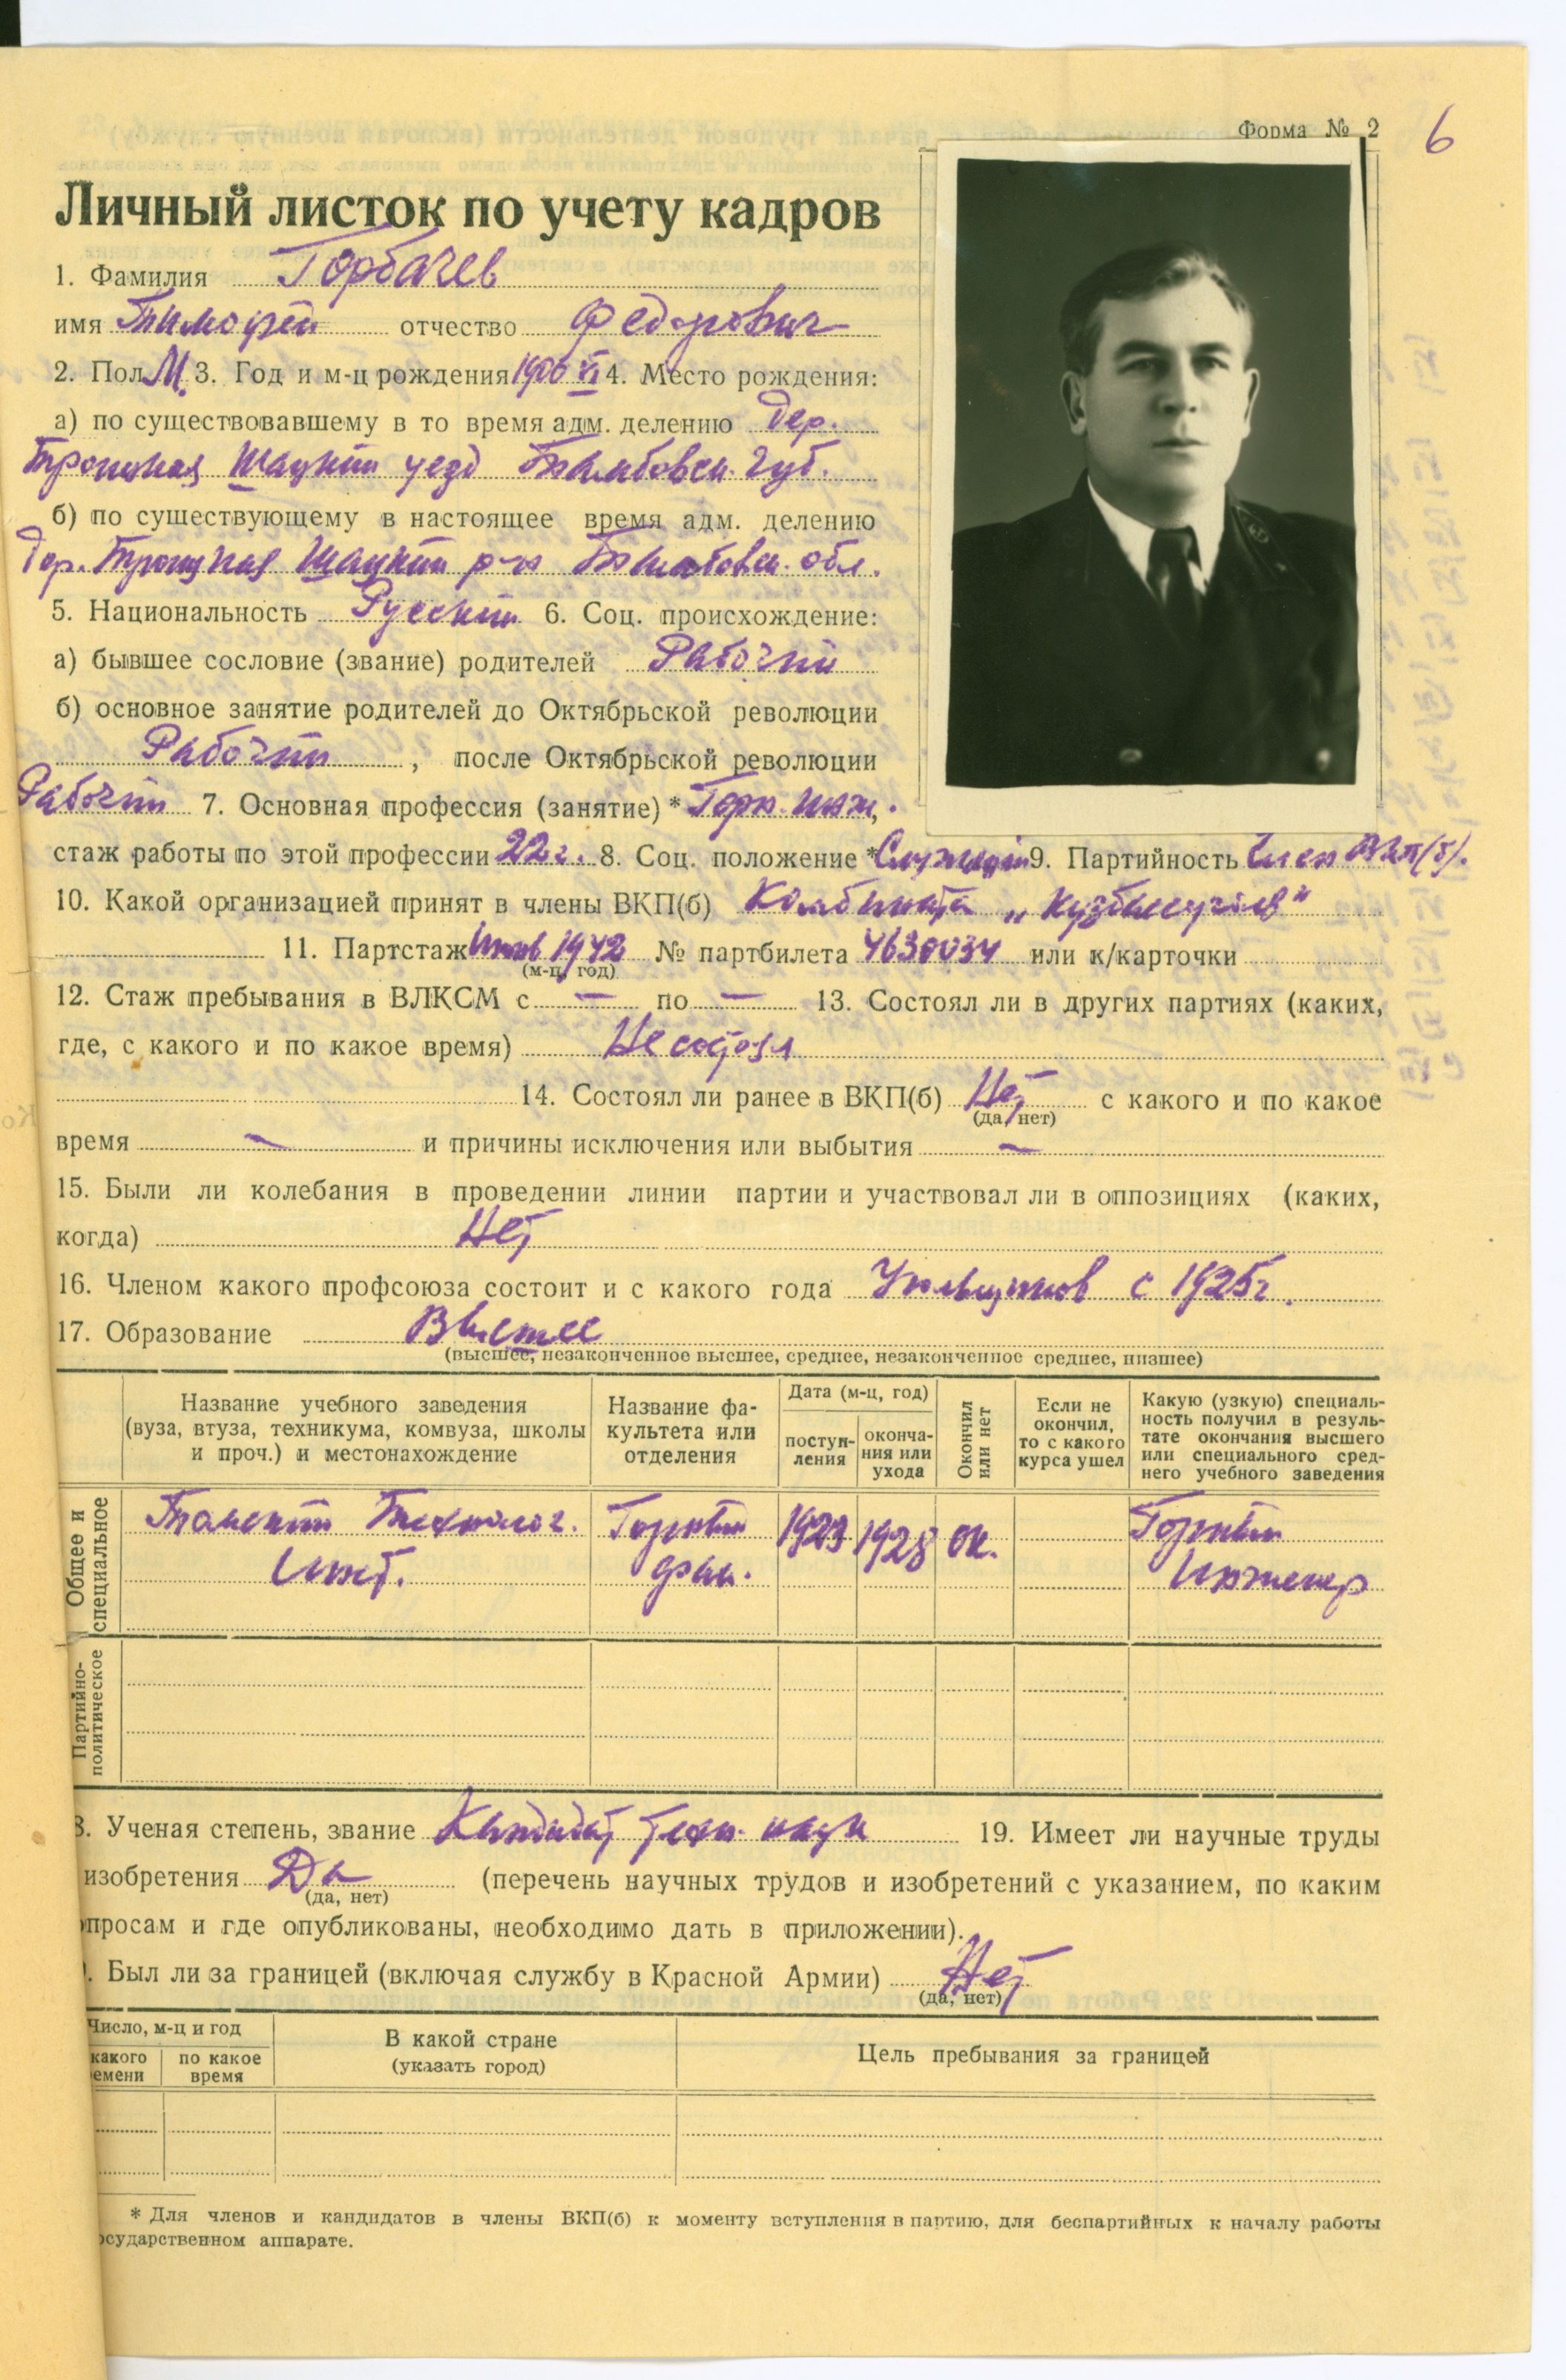 Форма № 2
6
Личный листок по учету кадров
1. Фамилия Горбачев
имя Тимофей отчество Федорович
2. Пол М. 3. Год и м-ц рождения 1900 VI 4. Место рождения:
а) по существовавшему в то время адм. делению дер.
Троицкая Шацкий уезд Тамбовск. губ.
б) по существующему в настоящее время адм. делению
дер. Троицкая Шацкий р-н Тамбовск. обл.
5. Национальность Русский 6. Соц. происхождение:
а) бывшее сословие (звание) родителей Рабочий
б) основное занятие родителей до Октябрьской революции
Рабочий, после Октябрьской революции
Рабочий 7. Основная профессия (занятие) * Горн. инж.,
стаж работы по этой профессии 22 г. 8. Соц. положение * Служащий 9. Партийность Член ВКП(б).
10. Какой организацией принят в члены ВКП(б) Комбината „Кузбассуголь"
11. Партстаж 1942 № партбилета 4630034 или к/карточки
(м-ц, год)
12. Стаж пребывания в ВЛКСМ с — по — 13. Состоял ли в других партиях (каких,
где, с какого и по какое время) Не состоял
14. Состоял ли ранее в ВКП(б) Нет с какого и по какое
(да, нет)
время — и причины исключения или выбытия —
15. Были ли колебания в проведении линии партии и участвовал ли в оппозициях (каких,
когда) Нет
16. Членом какого профсоюза состоит и с какого года Угольщиков с 1925 г.
17. Образование Высшее
(высшее, незаконченное высшее, среднее, незаконченное среднее, низшее)
Название учебного заведения
(вуза, втуза, техникума, комвуза, школы
и проч.) и местонахождение
Название фа-
культета или
отделения
Дата (м-ц, год)
поступ-
ления
оконча-
ния или
ухода
Окончил
или нет
Если не
окончил,
то с какого
курса ушел
Какую (узкую) специаль-
ность получил в резуль-
тате окончания высшего
или специального сред-
него учебного заведения
Общее и
специальное
Томский Технолог.
Инст.
Горный
фак.
1923
1928
ок.
Горный
Инженер
Партийно-
политическое
8. Ученая степень, звание Кандидат техн. наук 19. Имеет ли научные труды
изобретения Да (перечень научных трудов и изобретений с указанием, по каким
опросам и где опубликованы, необходимо дать в приложении).
. Был ли за границей (включая службу в Красной Армии) Нет
(да, нет)
(да, нет)
Число, м-ц и год
какого
емени
по какое
время
В какой стране
(указать город)
Цель пребывания за границей
* Для членов и кандидатов в члены ВКП(б) к моменту вступления в партию, для беспартийных к началу работы
осударственном аппарате.